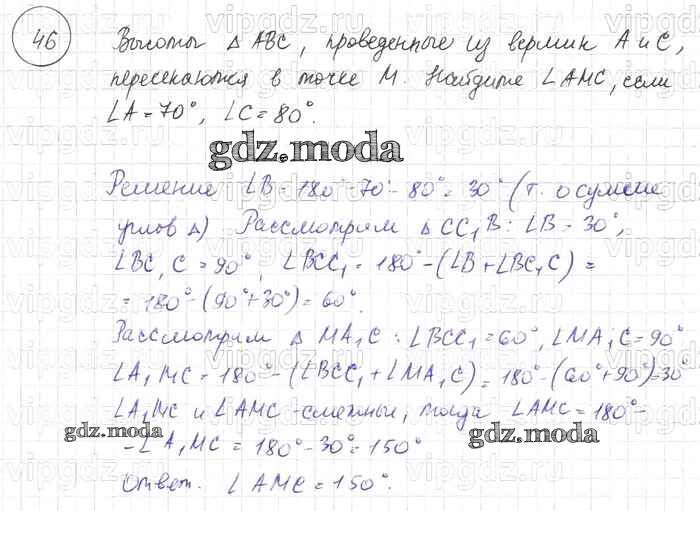 46
Высоты △ ABC, проведенные из вершин A и C,
пересекаются в точке M. Найдите ∠AMC, если
∠A = 70°, ∠C = 80°.
gdz.moda
Решение ∠B = 180° - 70° - 80° = 30° (т. о сумме
углов △) Рассмотрим △ CC₁B: ∠B = 30°,
∠BC₁C = 90°, ∠BCC₁ = 180° - (∠B + ∠BC₁C) =
= 180° - (90° + 30°) = 60°.
Рассмотрим △ MA₁C: ∠BCC₁ = 60°, ∠MA₁C = 90°
∠A₁MC = 180° - (∠BCC₁ + ∠MA₁C) = 180° - (60° + 90°) = 30°
∠A₁MC и ∠AMC - смежные, тогда ∠AMC = 180° -
gdz.moda
- ∠A₁MC = 180° - 30° = 150°
gdz.moda
Ответ. ∠AMC = 150°.